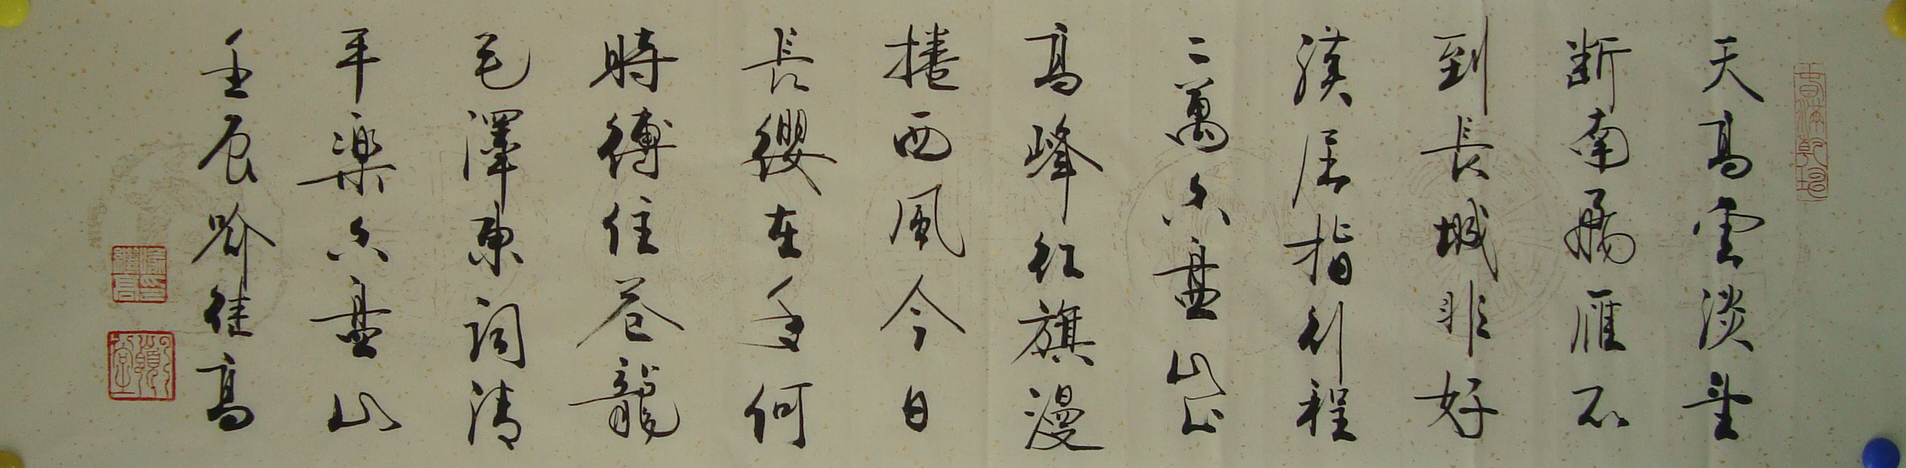 天高雲淡望
断南歸雁不
到長城非好
漢屈指行程
二萬六盤山上
高峰紅旗漫
捲西風今日
長纓在手何
時縛住蒼龍
毛澤東詞清
平樂六盤山
壬辰 高